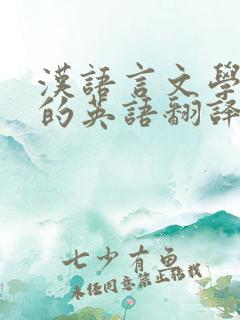 漢語言文學
的英語翻譯
七少有魚
未經同意禁止轉載